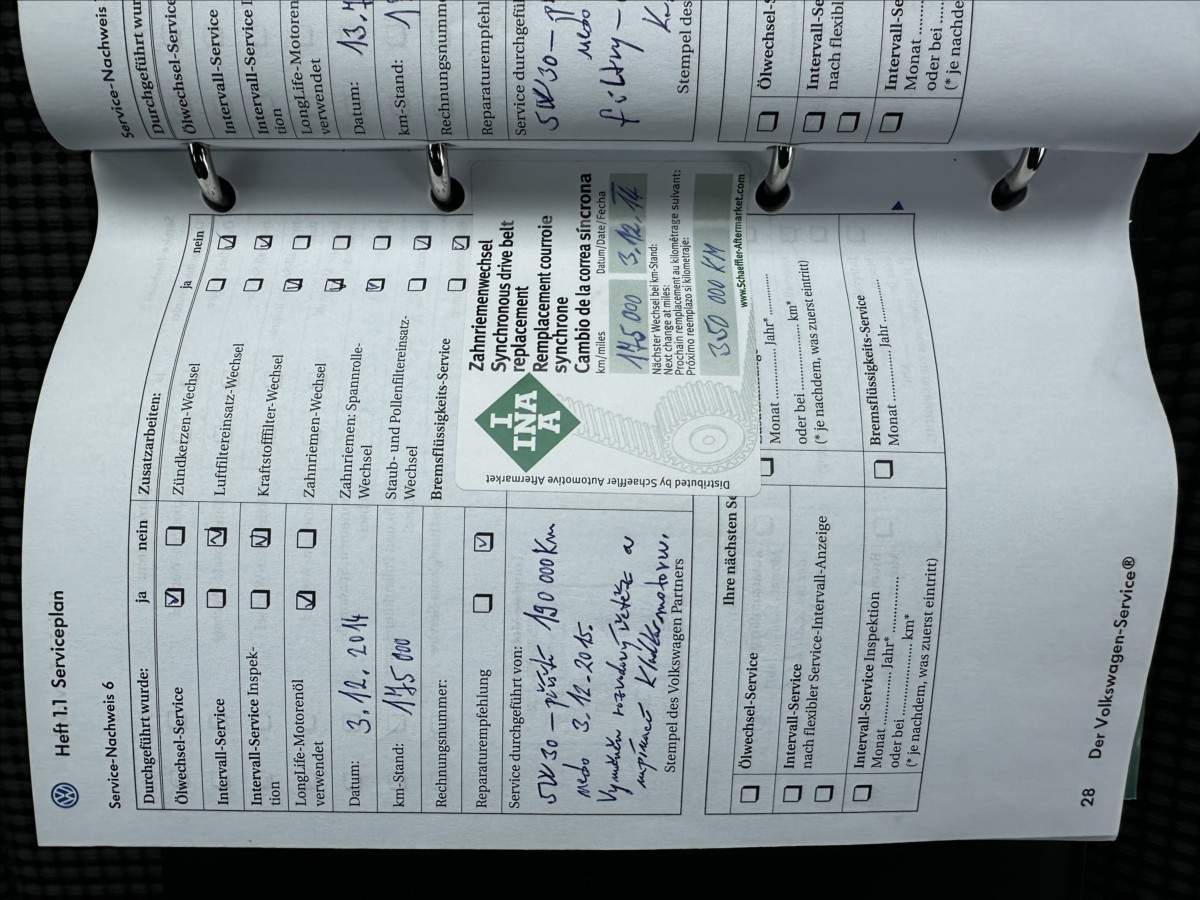 Service-Nachweis
Durchgeführt wur
Ölwechsel-Service
Intervall-Service
Intervall-Service I
tion
LongLife-Motoren
verwendet
Datum: 13.7
km-Stand:
Rechnungsnumme
Reparaturempfehl
Service durchgefü
5W30 –
nebo
filtry –
Stempel des
Ölwechsel-S
Intervall-Se
nach flexibl
Intervall-Se
Monat
oder bei
(* je nachde
Heft 1.1 Serviceplan
Service-Nachweis 6
Durchgeführt wurde: ja nein
Ölwechsel-Service
Intervall-Service
Intervall-Service Inspek-
tion
LongLife-Motorenöl
verwendet
Datum: 3.12.2014
km-Stand: 175 000
Rechnungsnummer:
Reparaturempfehlung
Service durchgeführt von:
5W30 – příště 190 000 Km
nebo 3.12.2015.
Vyměněn rozvodový a
Stempel des Volkswagen Partners
Zusatzarbeiten: ja nein
Zündkerzen-Wechsel
Luftfiltereinsatz-Wechsel
Kraftstofffilter-Wechsel
Zahnriemen-Wechsel
Zahnriemen: Spannrolle-
Wechsel
Staub- und Pollenfiltereinsatz-
Wechsel
Bremsflüssigkeits-Service
INA
Zahnriemenwechsel
Synchronous drive belt
replacement
Remplacement courroie
synchrone
Cambio de la correa síncrona
km/miles Datum/Date/Fecha
175 000 3.12.14
Nächster Wechsel bei km-Stand:
Next change at miles:
Prochain remplacement au kilométrage suivant:
Próximo reemplazo si kilometraje:
350 000 KM
www.Schaeffler-Aftermarket.com
Distributed by Schaeffler Automotive Aftermarket
Ihre nächsten Se
Ölwechsel-Service
Intervall-Service
nach flexibler Service-Intervall-Anzeige
Intervall-Service Inspektion
Monat ............ Jahr* ............
oder bei ............ km*
(* je nachdem, was zuerst eintritt)
Monat ............ Jahr* ............
oder bei ............ km*
(* je nachdem, was zuerst eintritt)
Bremsflüssigkeits-Service
Monat ............ Jahr ............
28
Der Volkswagen-Service®